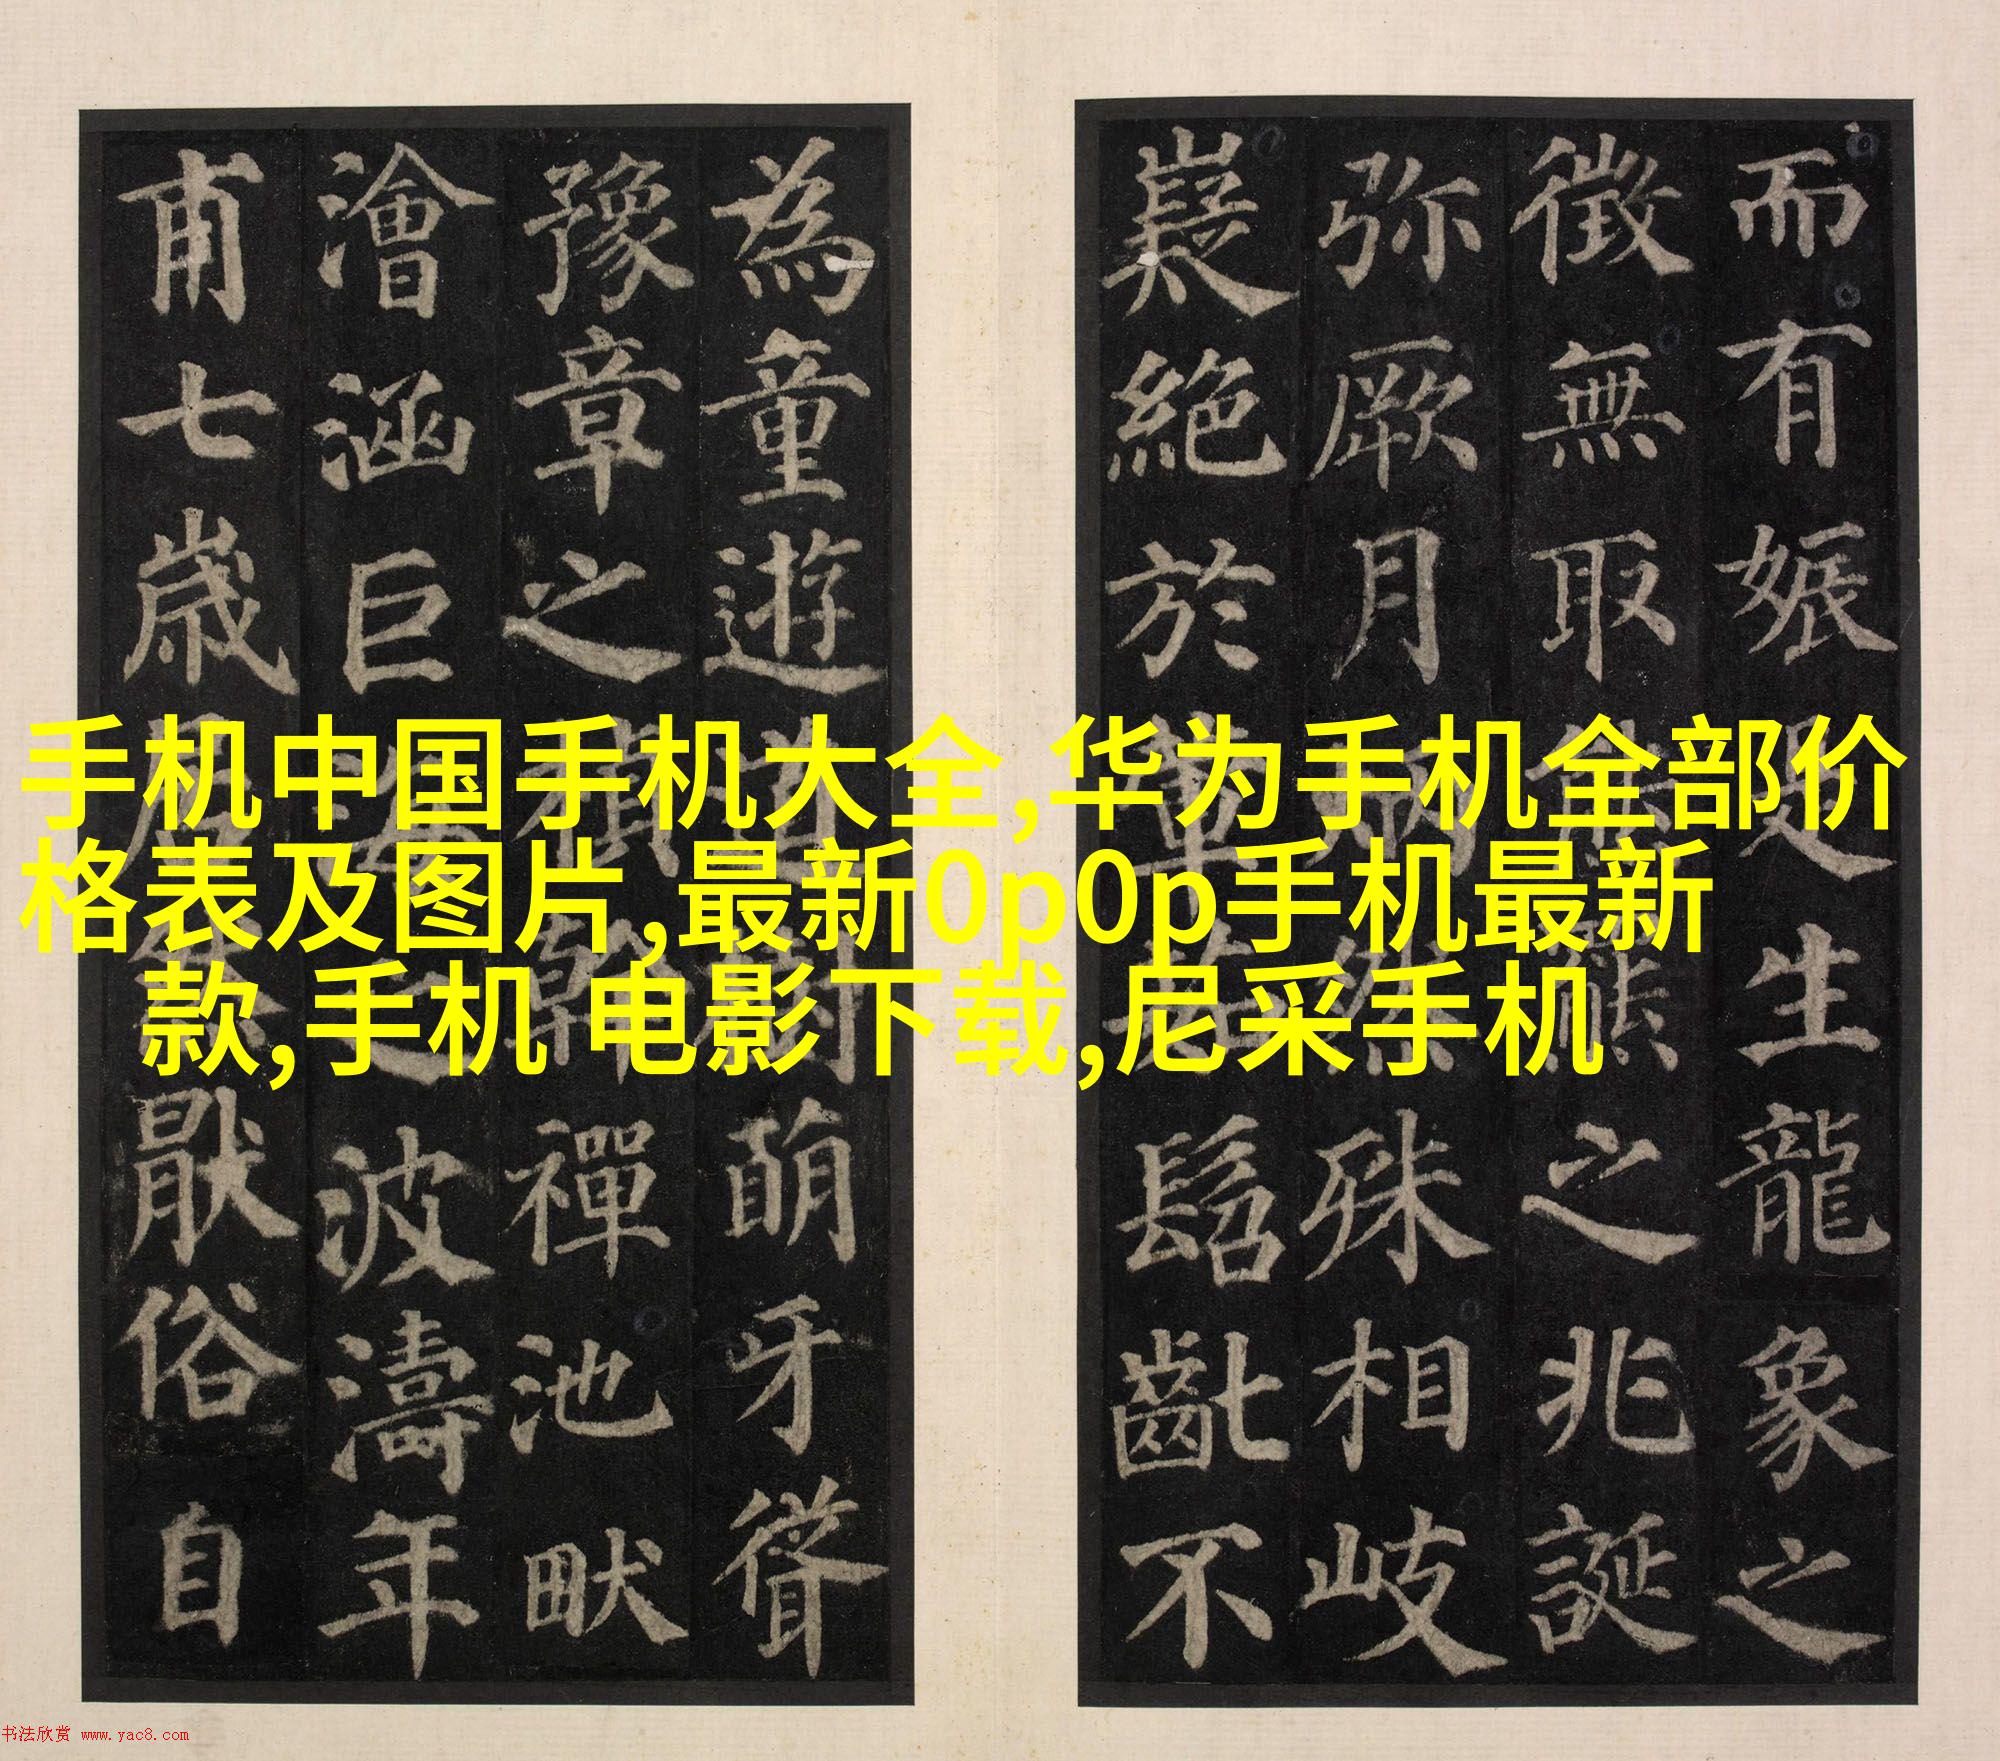 而有娠生龍象之
徵無取熊之兆誕
弥厥月炳然殊相岐
嶷絶於髫齔不
為童遊道樹萌牙聳
豫章之楨幹禪池畎
澮涵巨海之波濤年
甫七歲居然猒俗自
手机中国手机大全,华为手机全部价
格表及图片,最新0p0p手机最新
款,手机 电影下载,尼采手机
书法欣赏 www.yac8.com